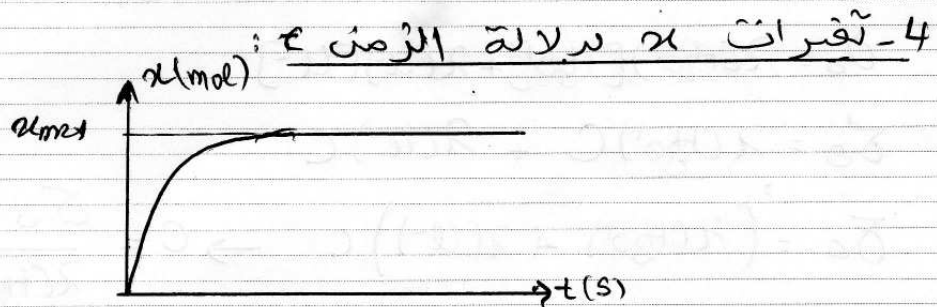 4- تغيرات x بدلالة الزمن t :
x(mol)
xmax
t(s)